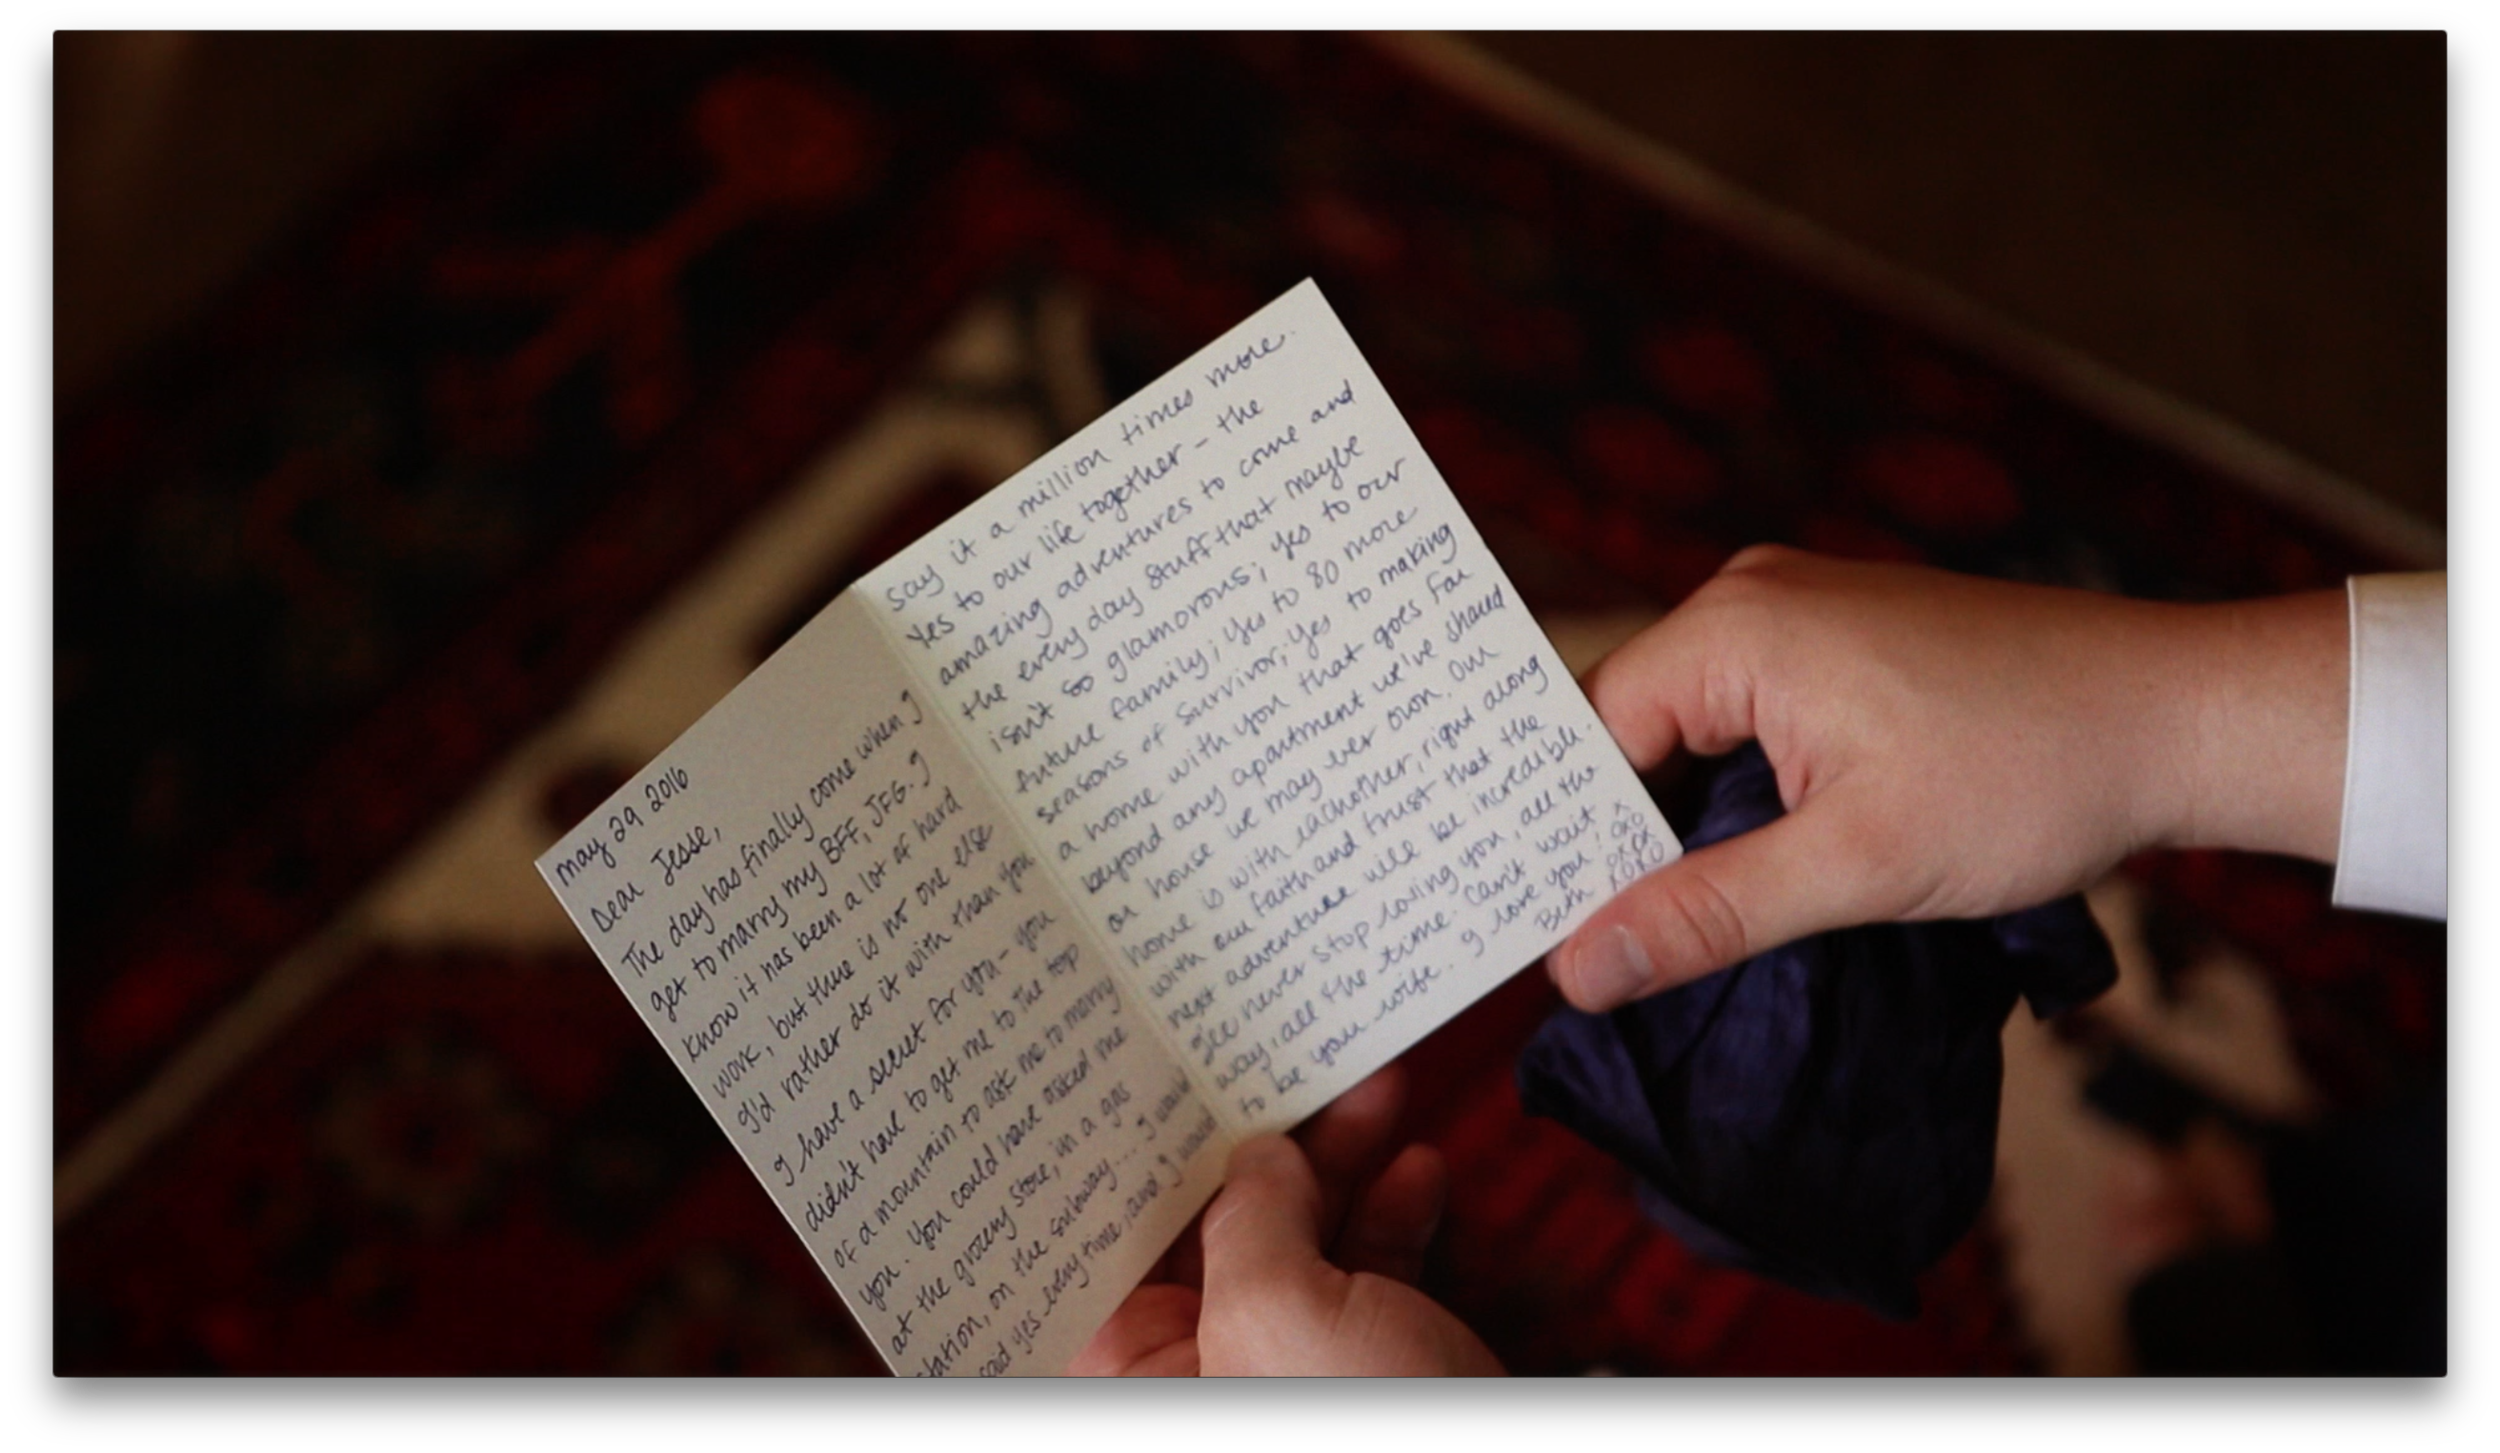 may 29 2016
Dear Jesse,
The day has finally come when I
get to marry my BFF, JFG. I
know it has been a lot of hard
work, but there is no one else
I'd rather do it with than you
I have a secret for you - you
didn't have to get me to the top
of a mountain to ask me to marry
you. You could have asked me
at the grocery store, in a gas
station, on the subway.... I would
said yes every time, and I would
say it a million times more.
Yes to our life together - the
amazing adventures to come and
the every day stuff that maybe
isn't so glamorous; yes to our
future family; Yes to 80 more
seasons of Survivor; Yes to making
a home with you that goes far
beyond any apartment we've shared
or house we may ever own. Our
home is with eachother, right along
with our faith and trust that the
next adventure will be incredible.
I'll never stop loving you, all the
way, all the time. Can't wait
to be your wife. I love you!
Beth
XOXO